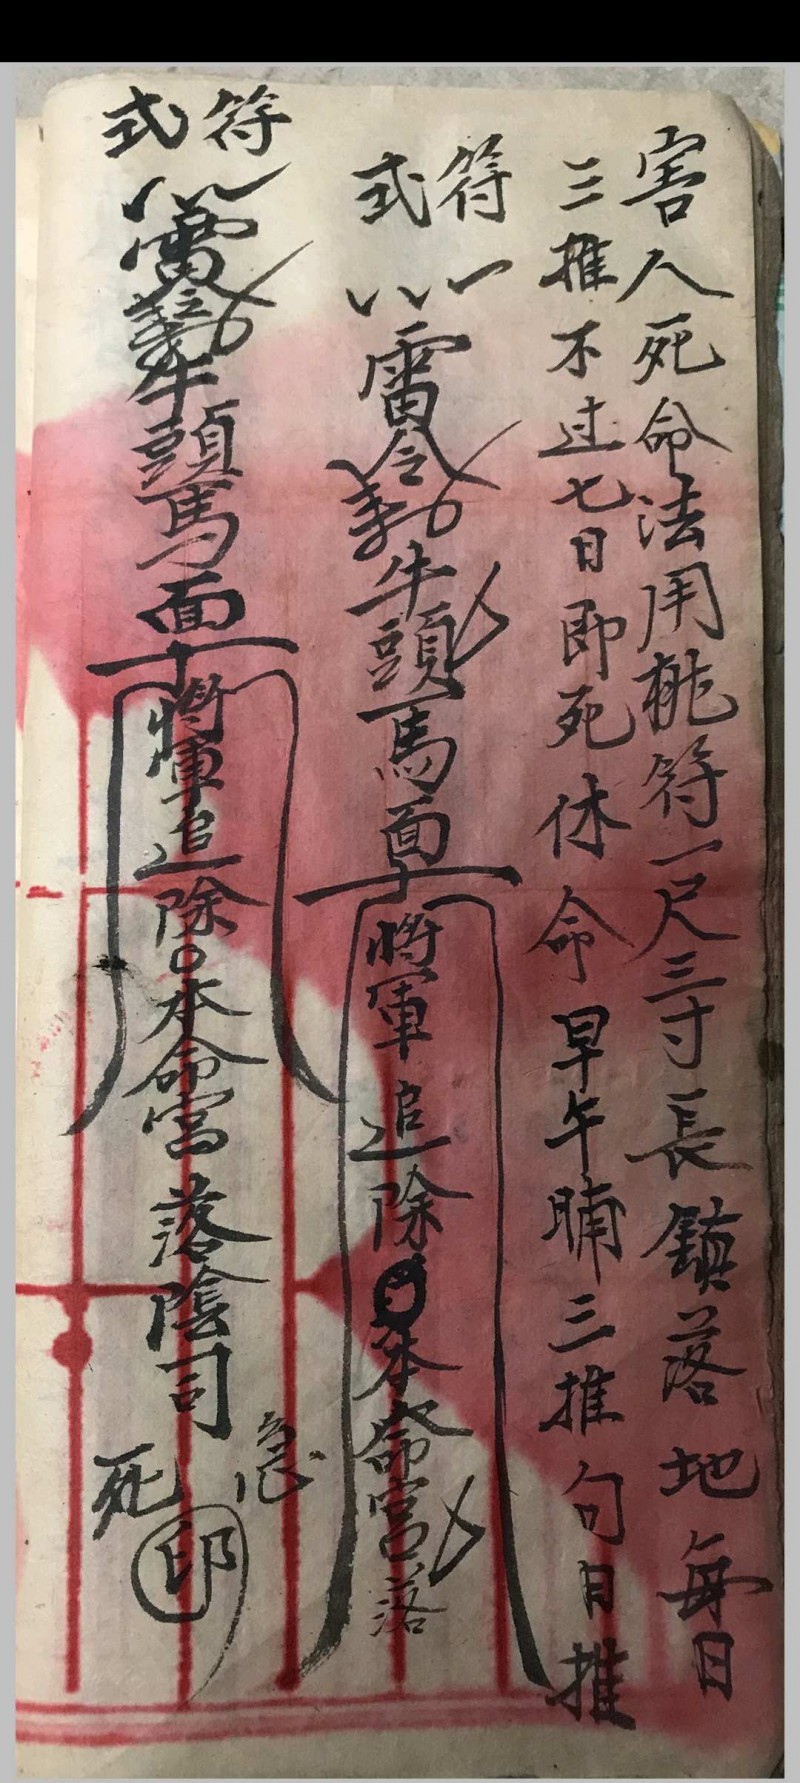 害人死命法用桃符一尺三寸長鎮落地每日
三推不过七日即死休命早午晡三推句日推
符式
雷令勅牛頭馬面
將軍追除本命宮落
符式
雷勅牛頭馬面
將軍追除○本命宮落陰司
急
死
印